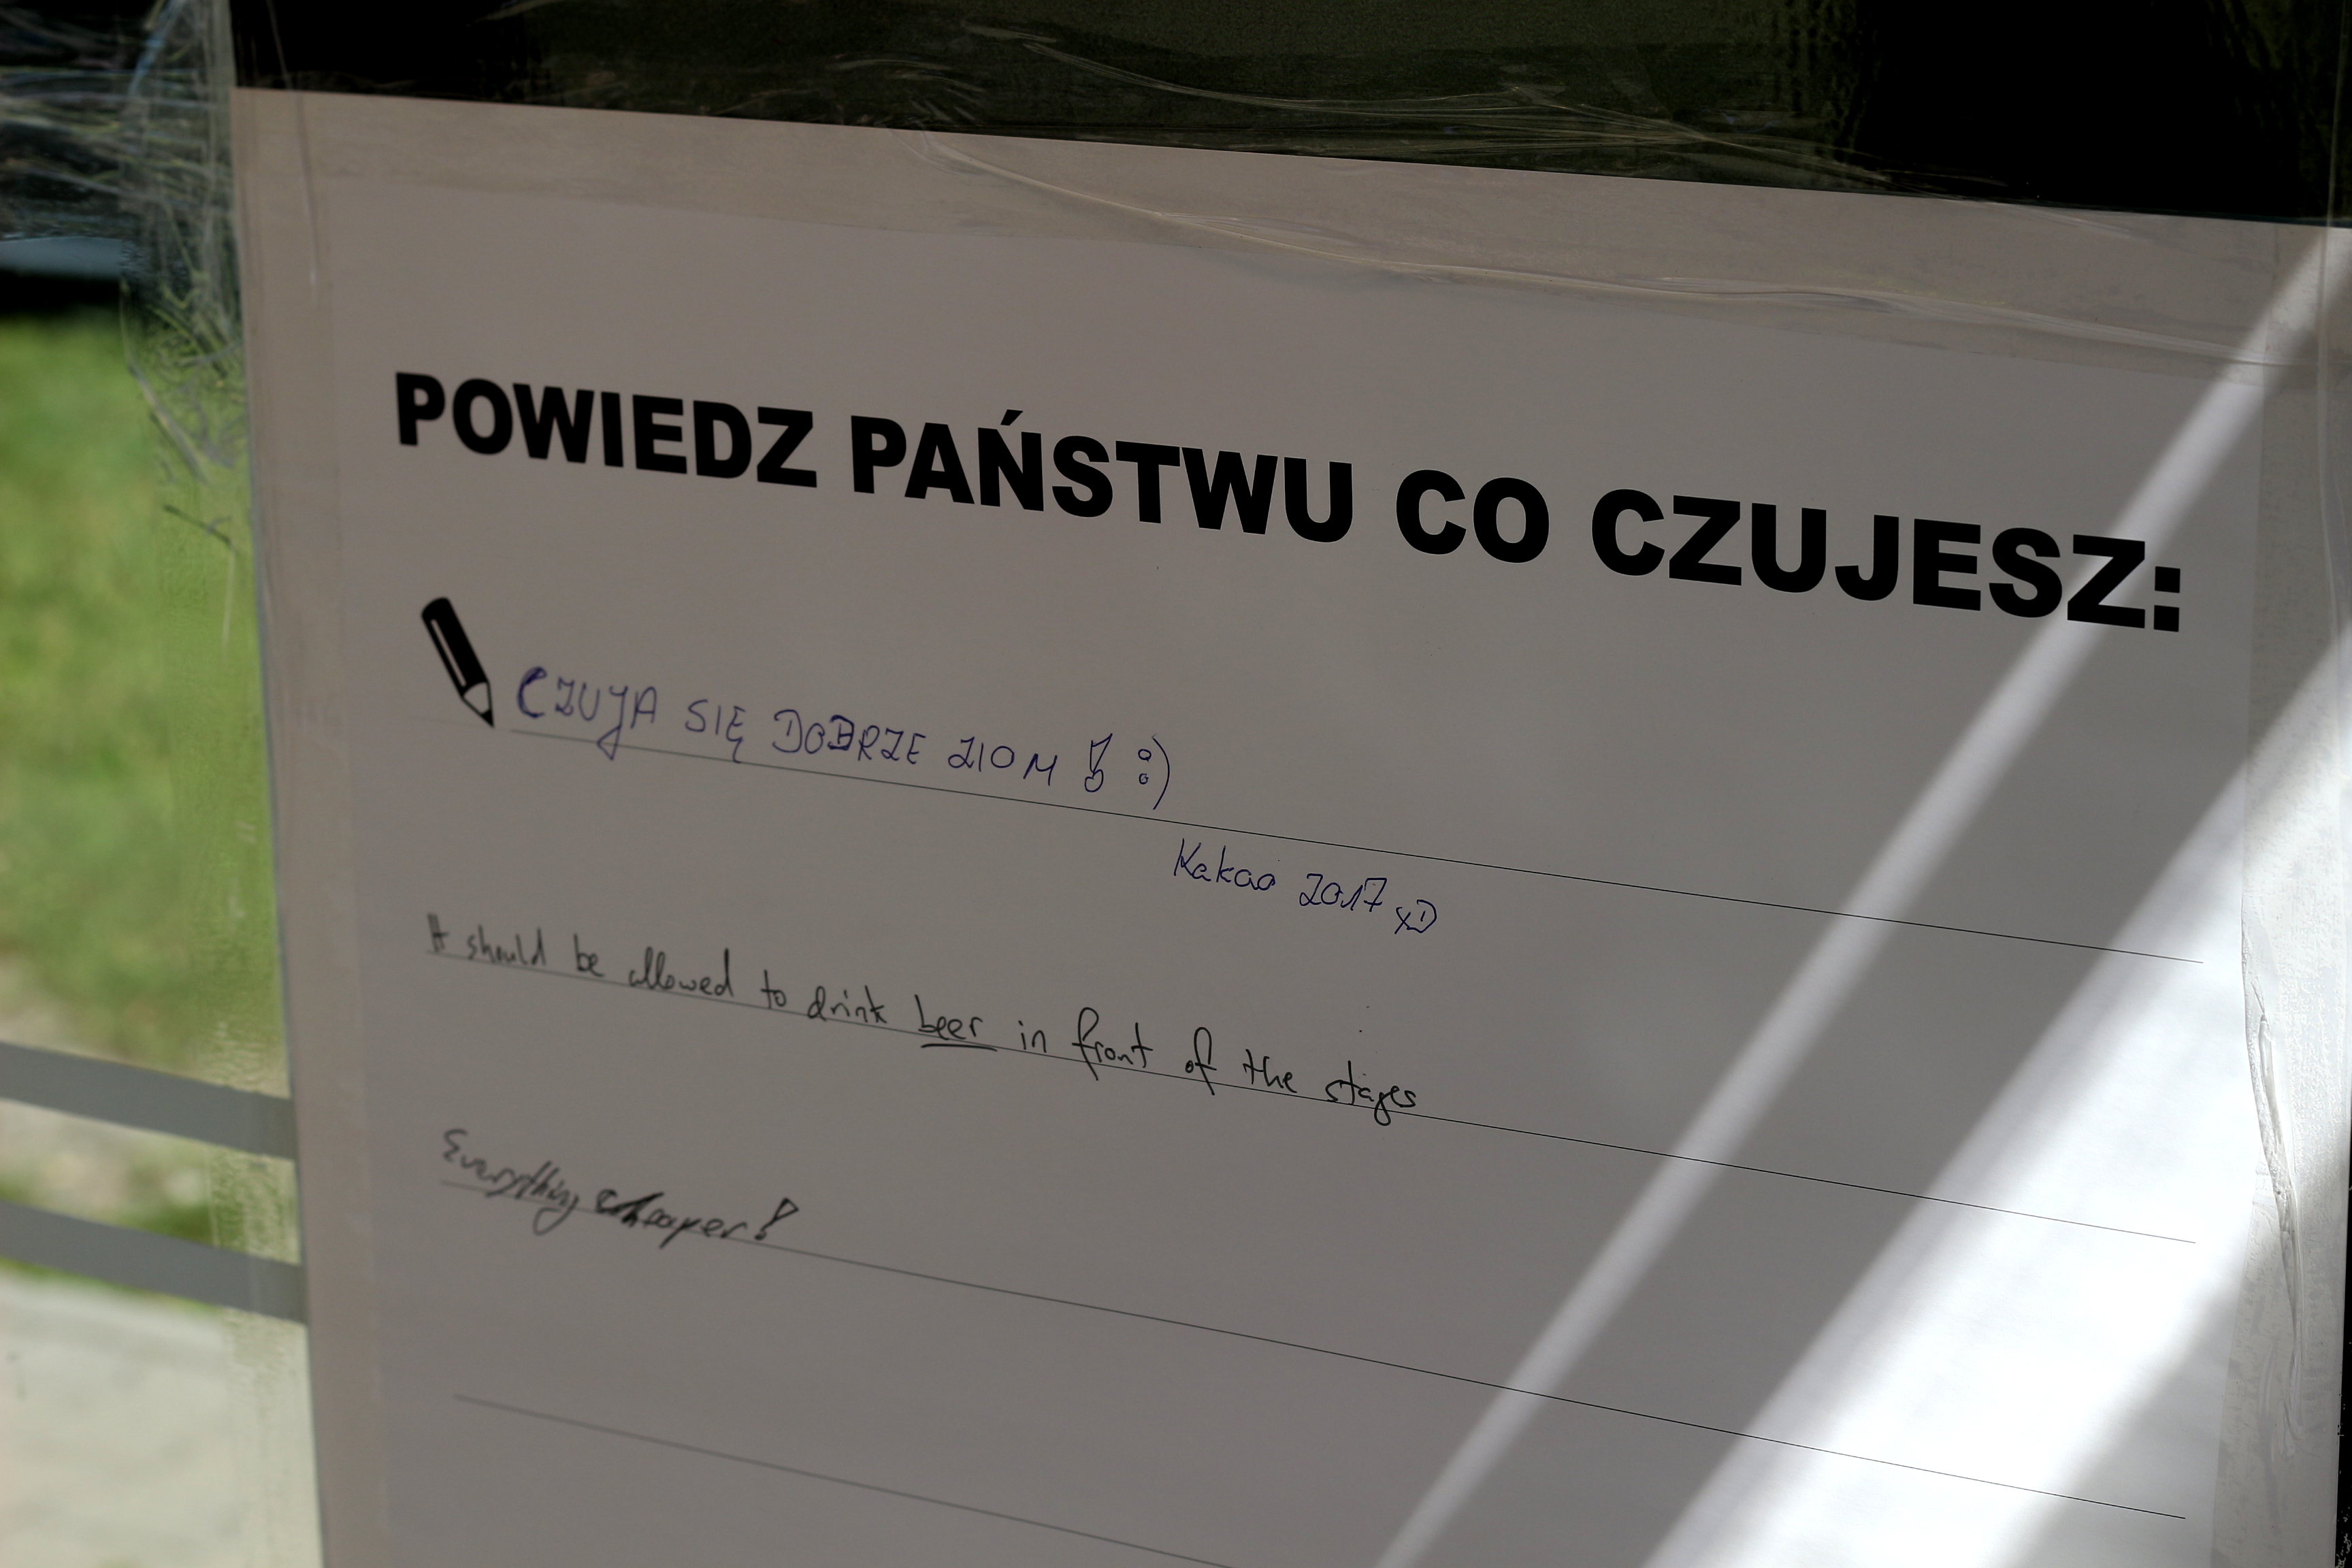 POWIEDZ PAŃSTWU CO CZUJESZ:
CZUJA SIĘ DOBRZE ZIOM ! :)
Kakao 2017 xD
It should be allowed to drink beer in front of the stages
Everything cheaper!